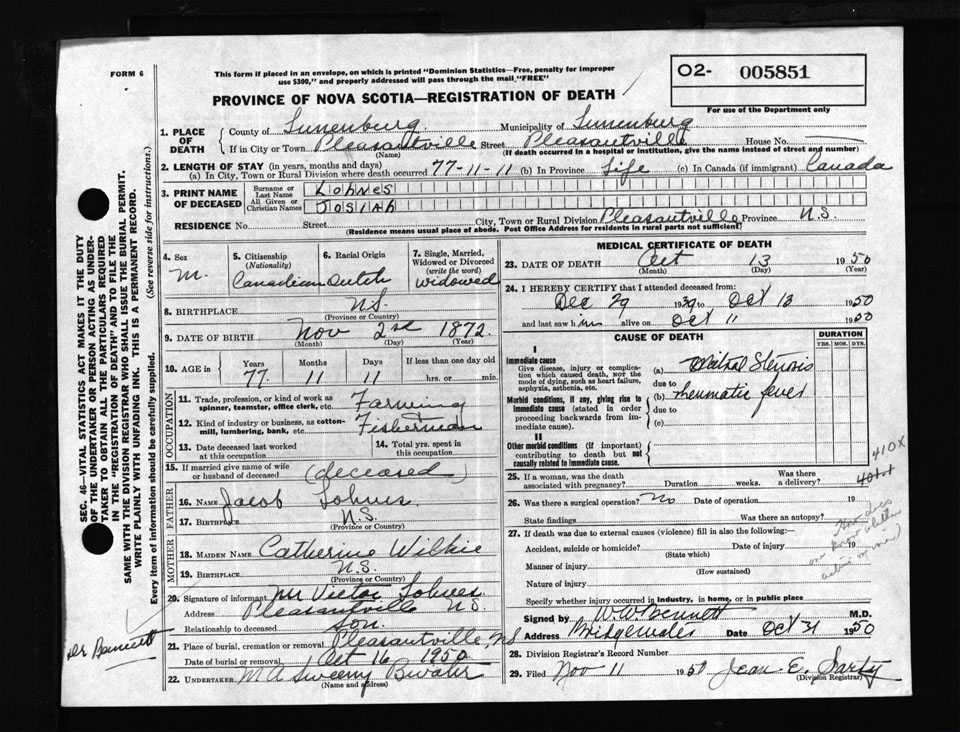 FORM 6
This form if placed in an envelope, on which is printed "Dominion Statistics—Free, penalty for improper
use $300," and properly addressed will pass through the mail "FREE"
O2- 005851
For use of the Department only
PROVINCE OF NOVA SCOTIA—REGISTRATION OF DEATH
1. PLACE OF DEATH
County of Lunenburg Municipality of Lunenburg
If in City or Town Pleasantville Street Pleasantville House No.
(Name) (If death occurred in a hospital or institution, give the name instead of street and number)
2. LENGTH OF STAY (in years, months and days)
(a) In City, Town or Rural Division where death occurred 77-11-11 (b) In Province Life (c) In Canada (if immigrant) Canada
3. PRINT NAME OF DECEASED
Surname or Last Name LOHNES
All Given or Christian Names JOSIAH
RESIDENCE No. Street City, Town or Rural Division Pleasantville Province N.S.
(Residence means usual place of abode. Post Office Address for residents in rural parts not sufficient)
4. Sex M.
5. Citizenship (Nationality) Canadian
6. Racial Origin Dutch
7. Single, Married, Widowed or Divorced (write the word) Widowed
8. BIRTHPLACE N.S.
(Province or Country)
9. DATE OF BIRTH Nov 2nd 1872
(Month) (Day) (Year)
10. AGE in Years 77 Months 11 Days 11 If less than one day old hrs. or min.
OCCUPATION
11. Trade, profession or kind of work as spinner, teamster, office clerk, etc. Farming
12. Kind of industry or business, as cotton-mill, lumbering, bank, etc. Fisherman
13. Date deceased last worked at this occupation
14. Total yrs. spent in this occupation
15. If married give name of wife or husband of deceased (deceased)
FATHER
16. NAME Jacob Lohnes
17. BIRTHPLACE N.S.
(Province or Country)
MOTHER
18. MAIDEN NAME Catherine Wilkie
19. BIRTHPLACE N.S.
(Province or Country)
20. Signature of informant Mr Victor Lohnes
Address Pleasantville N.S.
Relationship to deceased Son.
21. Place of burial, cremation or removal Pleasantville, N.S
Date of burial or removal Oct 16 1950
22. UNDERTAKER M A Sweeny Bwater
(Name and address)
MEDICAL CERTIFICATE OF DEATH
23. DATE OF DEATH Oct 13 1950
(Month) (Day) (Year)
24. I HEREBY CERTIFY that I attended deceased from:
Dec 29 1939 to Oct 13 1950
and last saw him alive on Oct 11 1950
CAUSE OF DEATH
DURATION
YRS. MOS. DYS.
I
Immediate cause
Give disease, injury or complication which caused death, not the mode of dying, such as heart failure, asphyxia, asthenia, etc.
(a) Mitral Stenosis
due to
Morbid conditions, if any, giving rise to immediate cause (stated in order proceeding backwards from immediate cause).
(b) rheumatic fever
due to
(c)
II
Other morbid conditions (if important) contributing to death but not causally related to immediate cause.
410X
25. If a woman, was the death associated with pregnancy? Duration weeks. Was there a delivery?
26. Was there a surgical operation? No Date of operation 19
State findings Was there an autopsy?
27. If death was due to external causes (violence) fill in also the following:
Accident, suicide or homicide? Date of injury 19
(State which)
Manner of injury
(How sustained)
Nature of injury
Specify whether injury occurred in industry, in home, or in public place
Signed by W.W. Bennett M.D.
Address Bridgewater Date Oct 31 1950
28. Division Registrar's Record Number
29. Filed Nov 11 1950 Jean E. Sarty
(Division Registrar)
SEC. 46—VITAL STATISTICS ACT MAKES IT THE DUTY
OF THE UNDERTAKER OR PERSON ACTING AS UNDER-
TAKER TO OBTAIN ALL THE PARTICULARS REQUIRED
IN THE "REGISTRATION OF DEATH" AND TO FILE THE
SAME WITH THE DIVISION REGISTRAR WHO SHALL ISSUE THE BURIAL PERMIT.
WRITE PLAINLY WITH UNFADING INK. THIS IS A PERMANENT RECORD.
Every item of information should be carefully supplied. (See reverse side for instructions.)
Dr Bennett